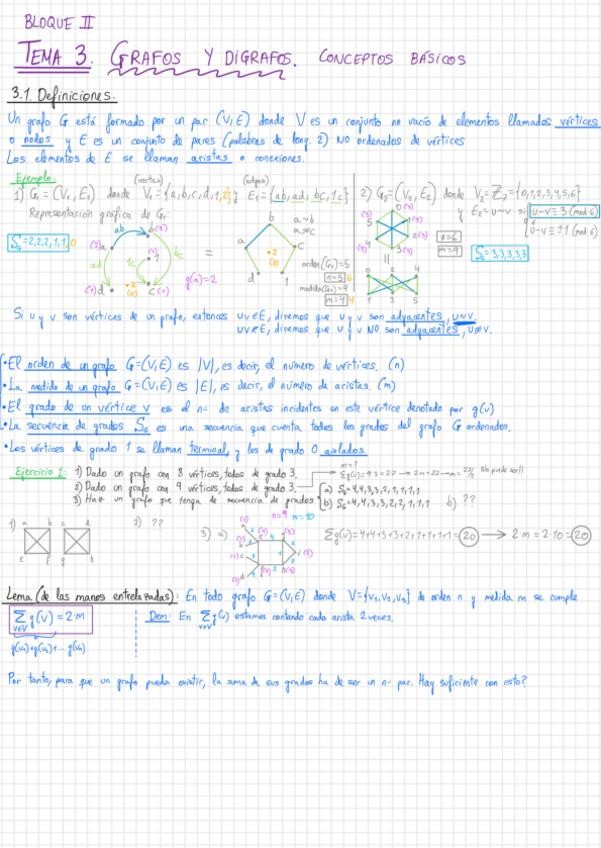 BLOQUE II
TEMA 3. GRAFOS Y DIGRAFOS. CONCEPTOS BÁSICOS
3.1. Definiciones.
Un grafo G está formado por un par (V,E) donde V es un conjunto no vacío de elementos llamados vértices
o nodos y E es un conjunto de pares (palabras de long. 2) NO ordenados de vértices
Los elementos de E se llaman aristas o conexiones.
Ejemplo:
(vertex) (edges)
1) G₁ = (V₁, E₁) donde V₁ = {a,b,c,d,1,2} y E₁ = {ab, ad, bc, 1c}
Representación gráfica de G₁:
S_G = 2,2,2,1,1,0
g(a)=2
a~b
orden(G₁)=5
n=5 6
medida(G₁)=4
m=4
2) G₂=(V₂, E₂) donde V₂=
={0,1,2,3,4,5,6}
y E₂= u~v si u-v≡3 (mod 6)
u-v≡±1 (mod 6)
n=6
m=9
S_G=3,3,3,3,3
Si u y v son vértices de un grafo, entonces uv∈E, diremos que u y v son adyacentes, u~v.
uv∉E, diremos que u y v NO son adyacentes, u≁v.
• El orden de un grafo G=(V,E) es |V|, es decir, el número de vértices. (n)
• La medida de un grafo G=(V,E) es |E|, es decir, el número de aristas. (m)
• El grado de un vértice v es el nº de aristas incidentes en este vértice denotado por g(v)
• La secuencia de grados S_G es una secuencia que cuenta todos los grados del grafo G ordenados.
• Los vértices de grado 1 se llaman terminal, y los de grado 0 aislados.
Ejercicio 1: 1) Dado un grafo con 8 vértices, todos de grado 3.
2) Dado un grafo con 9 vértices, todos de grado 3.
m=?
Σg(v)=9·3=27 → 2m=27 → m=27/2 No puede ser!!
3) Haz un grafo que tenga de secuencia de grados
a) S_G=4,4,3,3,2,1,1,1,1
b) S_G=4,4,3,3,2,2,1,1,1
b) ??
1) a b c d
2) ??
3) a)
n=9 m=10
Σg(v)=4+4+3+3+2+1+1+1+1=20 → 2·m=2·10=20
Lema (de las manos entrelazadas): En todo grafo G=(V,E) donde V={v₁,v₂,vₙ} de orden n y medida m se cumple
Σ g(v) = 2·m
v∈V
g(v₁)+g(v₂)+...g(vₙ)
Dem: En Σ g(v) estamos contando cada arista 2 veces.
v∈V
Por tanto, para que un grafo pueda existir, la suma de sus grados ha de ser un nº par. Hay suficiente con esto?